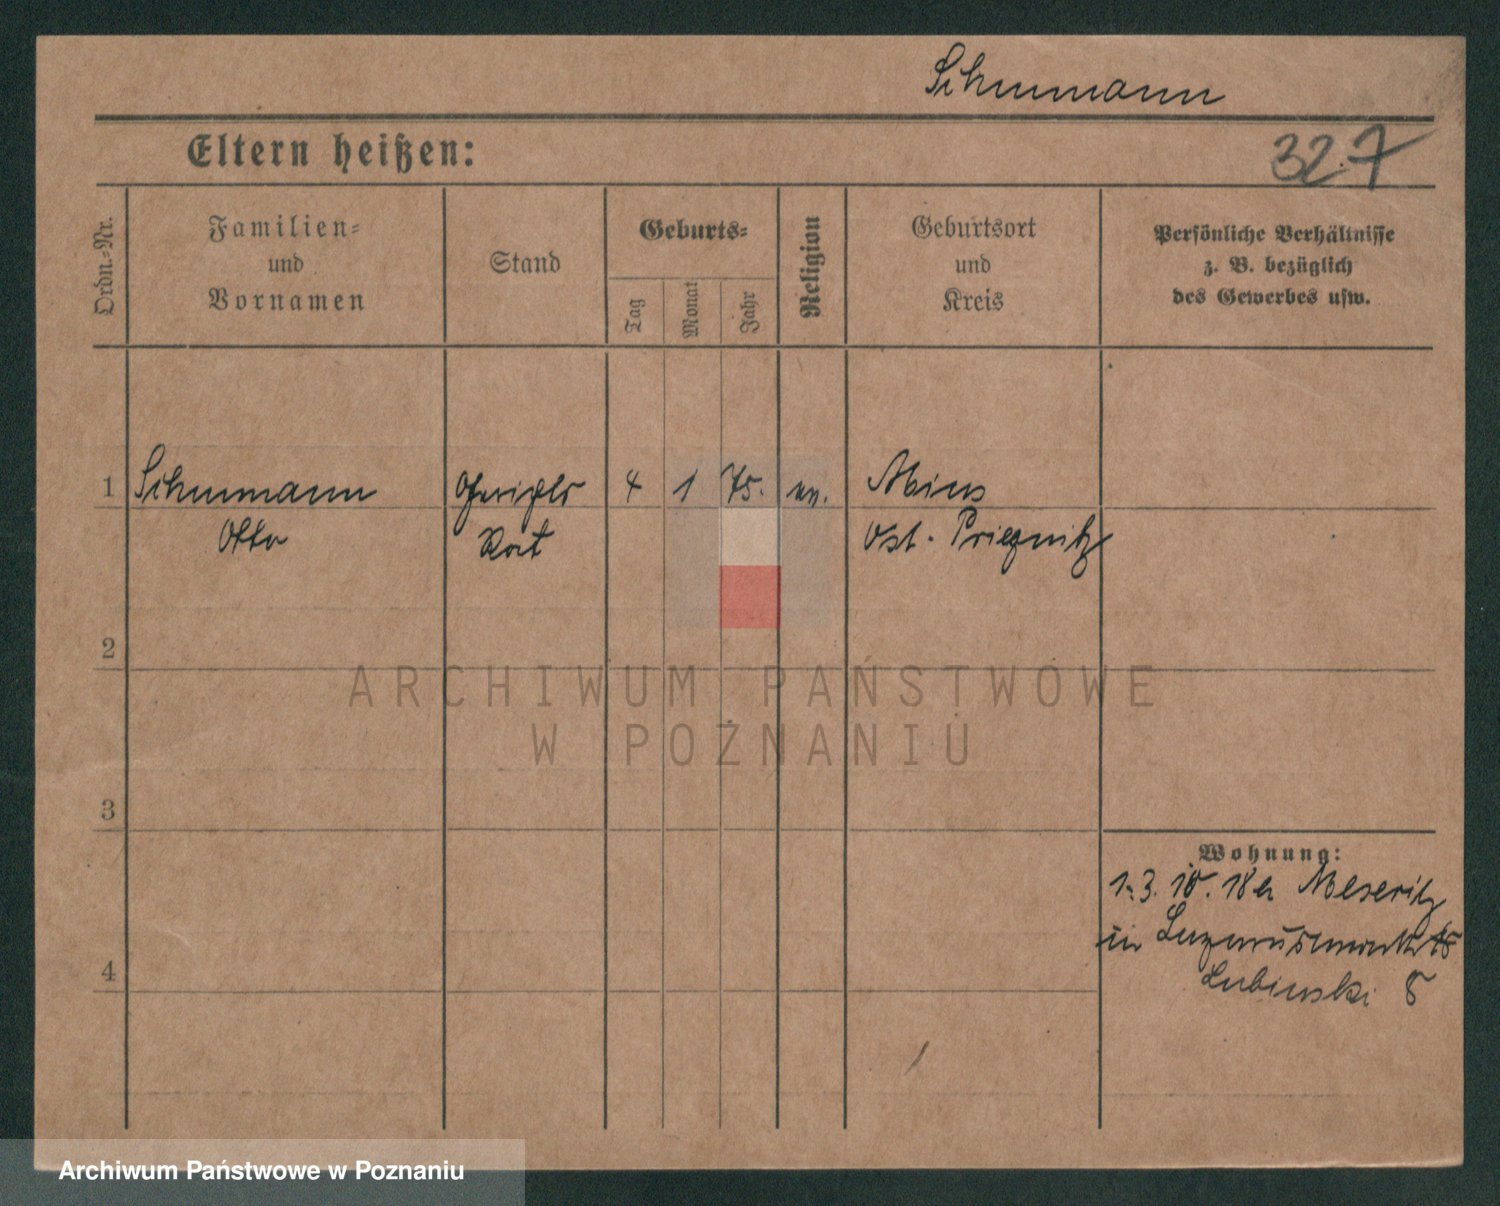 Schumann
Eltern heißen:
327
Ordn.-Nr.
Familien-
und
Vornamen
Stand
Geburts-
Tag
Monat
Jahr
Religion
Geburtsort
und
Kreis
Persönliche Verhältnisse
z. B. bezüglich
des Gewerbes usw.
1 Schumann Gerichts 4 1 75. ev.
Otto Rat Ost-Priegnitz
2
ARCHIWUM PAŃSTWOWE
W POZNANIU
3
Wohnung:
1.3. 18 Meseritz
in
4
Lubinski 8
Archiwum Państwowe w Poznaniu